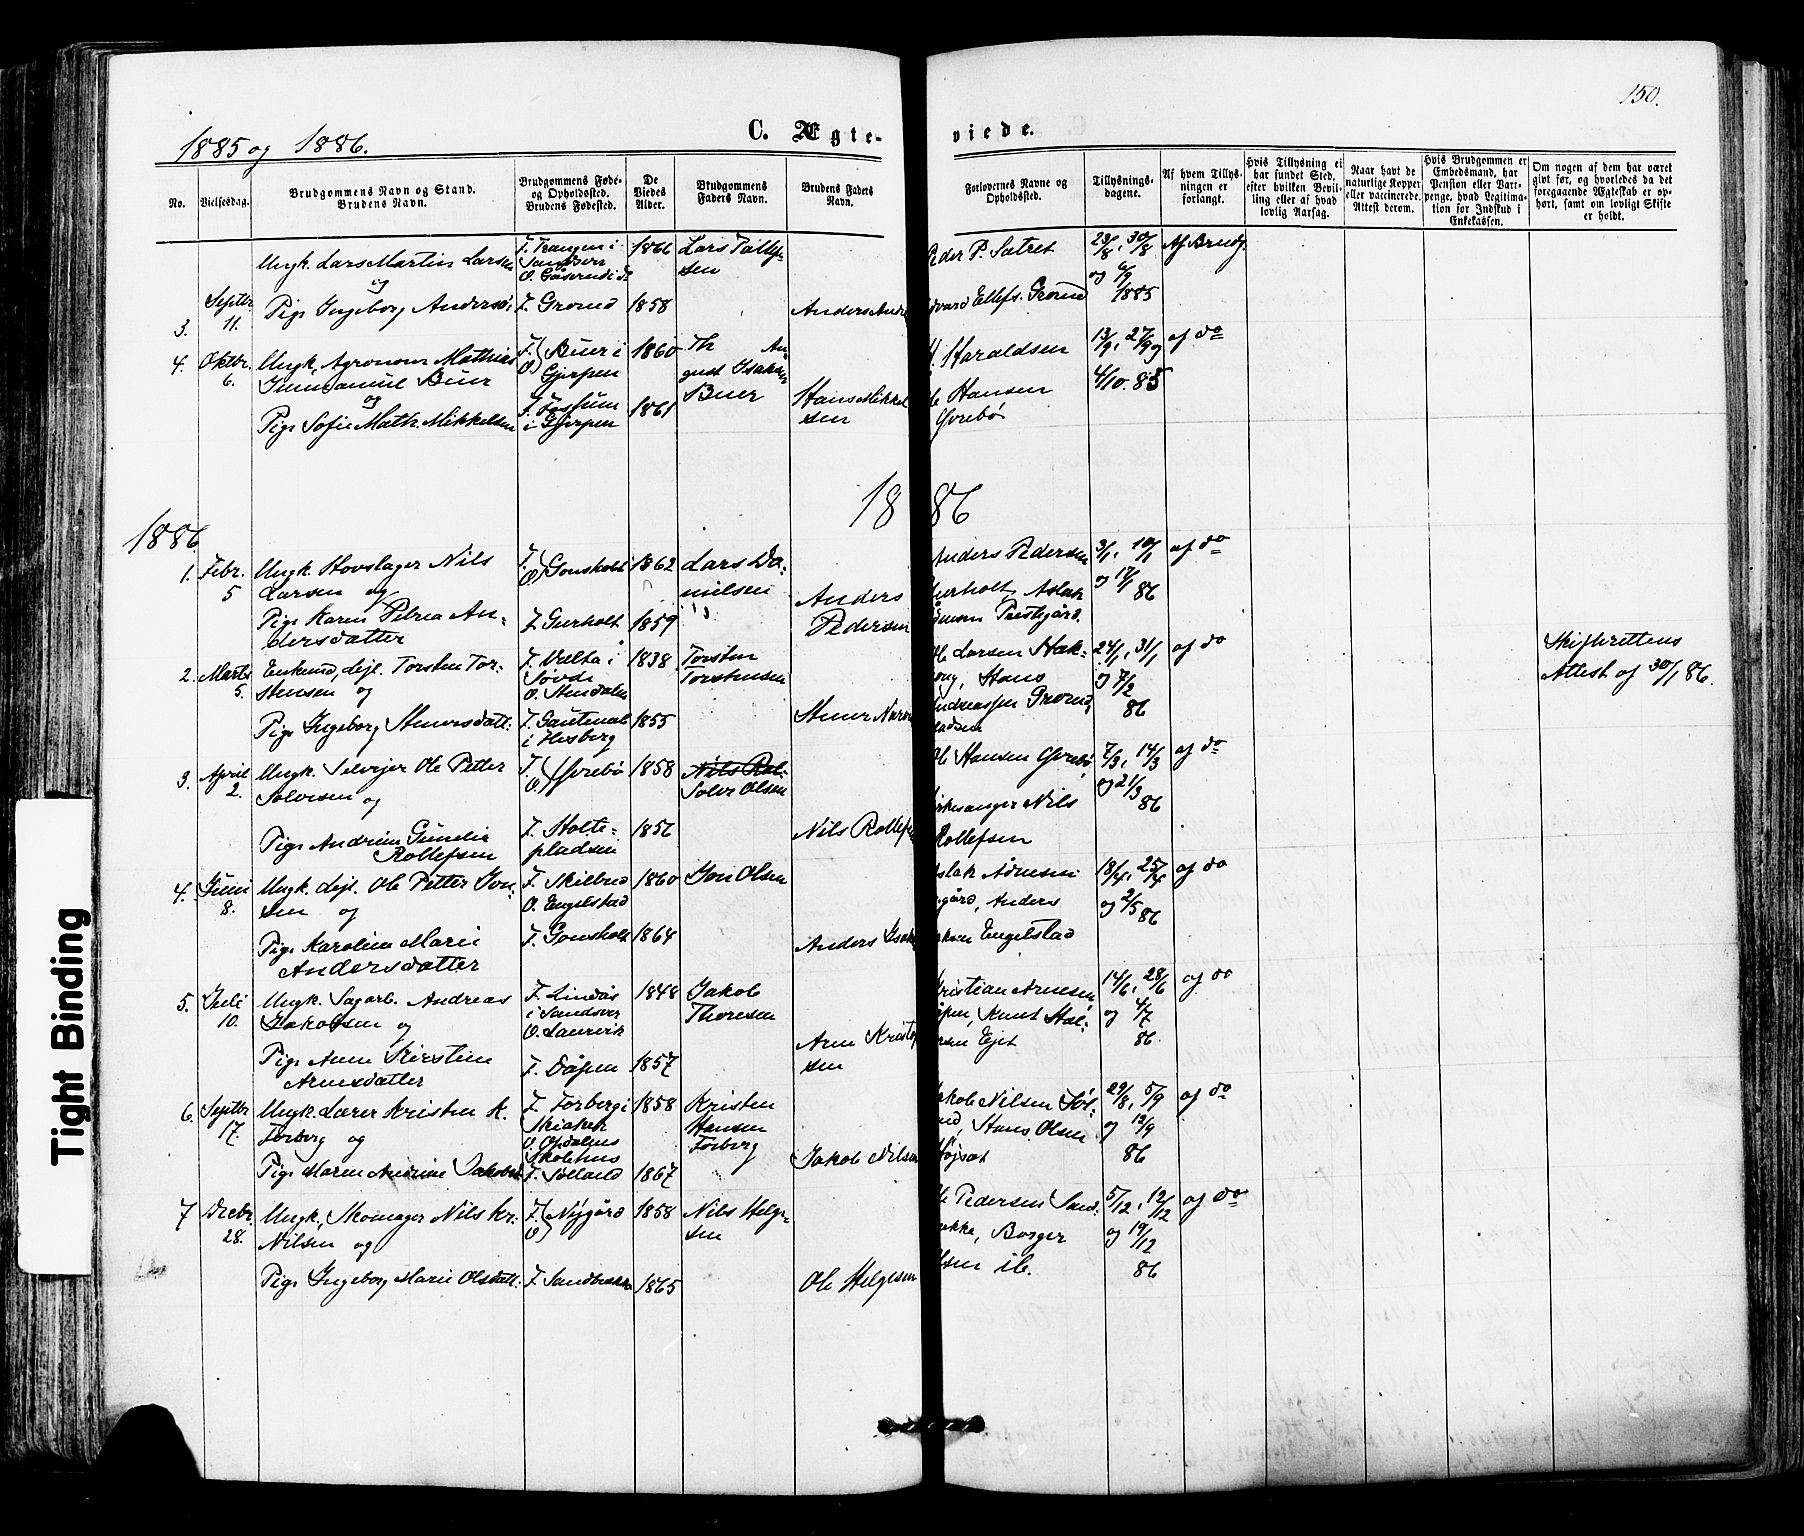 150.
1885 og 1886.
C. Ægte-
viede.
No.
Vielsesdag.
Brudgommens Navn og Stand.
Brudens Navn.
Brudgommens Føde-
og Opholdssted.
Brudens Fødested.
De
Viedes
Alder.
Brudgommens
Faders Navn.
Brudens Faders
Navn.
Forlovernes Navne og
Opholdssted.
Tillysnings-
dagene.
Af hvem Tillys-
ningen er
forlangt.
Hvis Tillysning ei
har fundet Sted,
efter hvilken Bevil-
ling eller af hvad
lovlig Aarsag.
Naar havt de
naturlige Kopper
eller vaccinerede.
Attest derom.
Hvis Brudgommen er
Embedsmand, har
Pension eller Vart-
penge, hvad Legitima-
tion for Indskud i
Enkekassen.
Om nogen af dem har været
givt før, og hvorledes da det
foregaaende Ægteskab er op-
hørt, samt om lovligt Skifte
er holdt.
3. Septbr. 11.
Ungk. Lars Martin Larsen
og
Pige Ingeborg Andersd.
F. Tangen i
Sandsver
O. Gåserud i do
F. Grorud
1866
1858
Lars Tollef-
sen
Anders Andr
eder P. Sætret
dvard Ellefs. Grorud
23/8, 30/8
og 6/9
1885
Af Brudg.
4. Oktbr. 6.
Ungk. Agronom Mathias
Immanuel Buer
og
Pige Sofie Math. Mikkelsen
F. O. Buer i
Gjerpen
F. Fossum
i Gjerpen
1860
1861
Th An-
gust Isaksen
Buer
Hans Mikkel
sen
H. Haraldsen
le Hansen
Gvrebø
13/9, 27/9 og
4/10. 85
af do
1886
1886
1. Febr. 5
Ungk. Hovslager Nils
Larsen og
Pige Karen Petrea An-
dersdatter
F. O. Gonsholt
F. Gurholt
1862
1859
Lars Da-
nielsen
Anders
Pedersen
Anders Pedersen
Gurholt, Aslak
Ådnesen Prestegård
3/1, 10/1
og 17/1
86
af do
2. Marts 5.
Enkemd, Lejl. Torsten Tor-
stensen og
Pige Ingeborg Steinersdatt:
F. Valta i
Søvde
O. Stendalen
F. Gautenal
i Flesberg
1838
1855
Torsten
Torstensen
Steiner Narve
Ole Larsen Stek-
org, Hans
Andreassen Grorud-
ladsen
24/1, 31/1
og 7/2
86
af do
Skifterettens
Attest af 30/1 86.
3. April 2.
Ungk. Selvejer Ole Petter
Solvesen og
Pige Andrine Gunelie
Rollefsen
F. O. Gvrebø
F. Holte-
pladsen
1858
1856
Nils Rol-
Solve Olsen
Nils Rollefs
Ole Hansen Gvrebø,
irkesanger Nils
Rollefsen
7/3, 14/3
og 21/3
86
af do
4. Juni 8.
Ungk. Lejl. Ole Petter Jon-
sen og
Pige Karoline Marie
Andersdatter
F. Skilbred
O. Engelstad
F. Gonsholt
1860
1864
Jon Olsen
Anders Isak
slak Ådnesen
gård, Anders
aksen Engelstad
18/4, 25/4
og 2/5 86
af do
5. Juli 10.
Ungk. Sagarb. Andreas
Jakobsen og
Pige Anne Kirstine
Arnesdatter
F. Lindås
i Sandsver
O. Laurvik
F. Dåpen
1848
1857
Jakob
Thoresen
Arne Kristof
sen
Kristian Arnesen
åpen, Knut Hal-
rsen Ejet
14/6, 28/6
og 4/7
86
af do
6. Septbr. 17.
Ungk. Lærer Kristen K.
Forberg og
Pige Maren Andrine Jakobsd
F. Forberg i
Skiaker
O. Opdalens
Skolehus
F. Sølland
1858
1867
Kristen
Hansen
Forberg
Jakob Nilsen
Jakob Nilsen Søl-
nd, Hans Olsen
Højsæt
29/8, 5/9
og 12/9
86
af do
7 Decbr. 28.
Ungk. Skomager Nils Kr.
Nilsen og
Pige Ingeborg Marie Olsdatt.
F. O. Nygård
F. Sandbakke
1858
1865
Nils Helge-
sen
Ole Helgesen
Ole Pedersen Sand-
akke, Borger
lsen ib.
5/12, 12/12
og 19/12
86
af do
Tight Binding